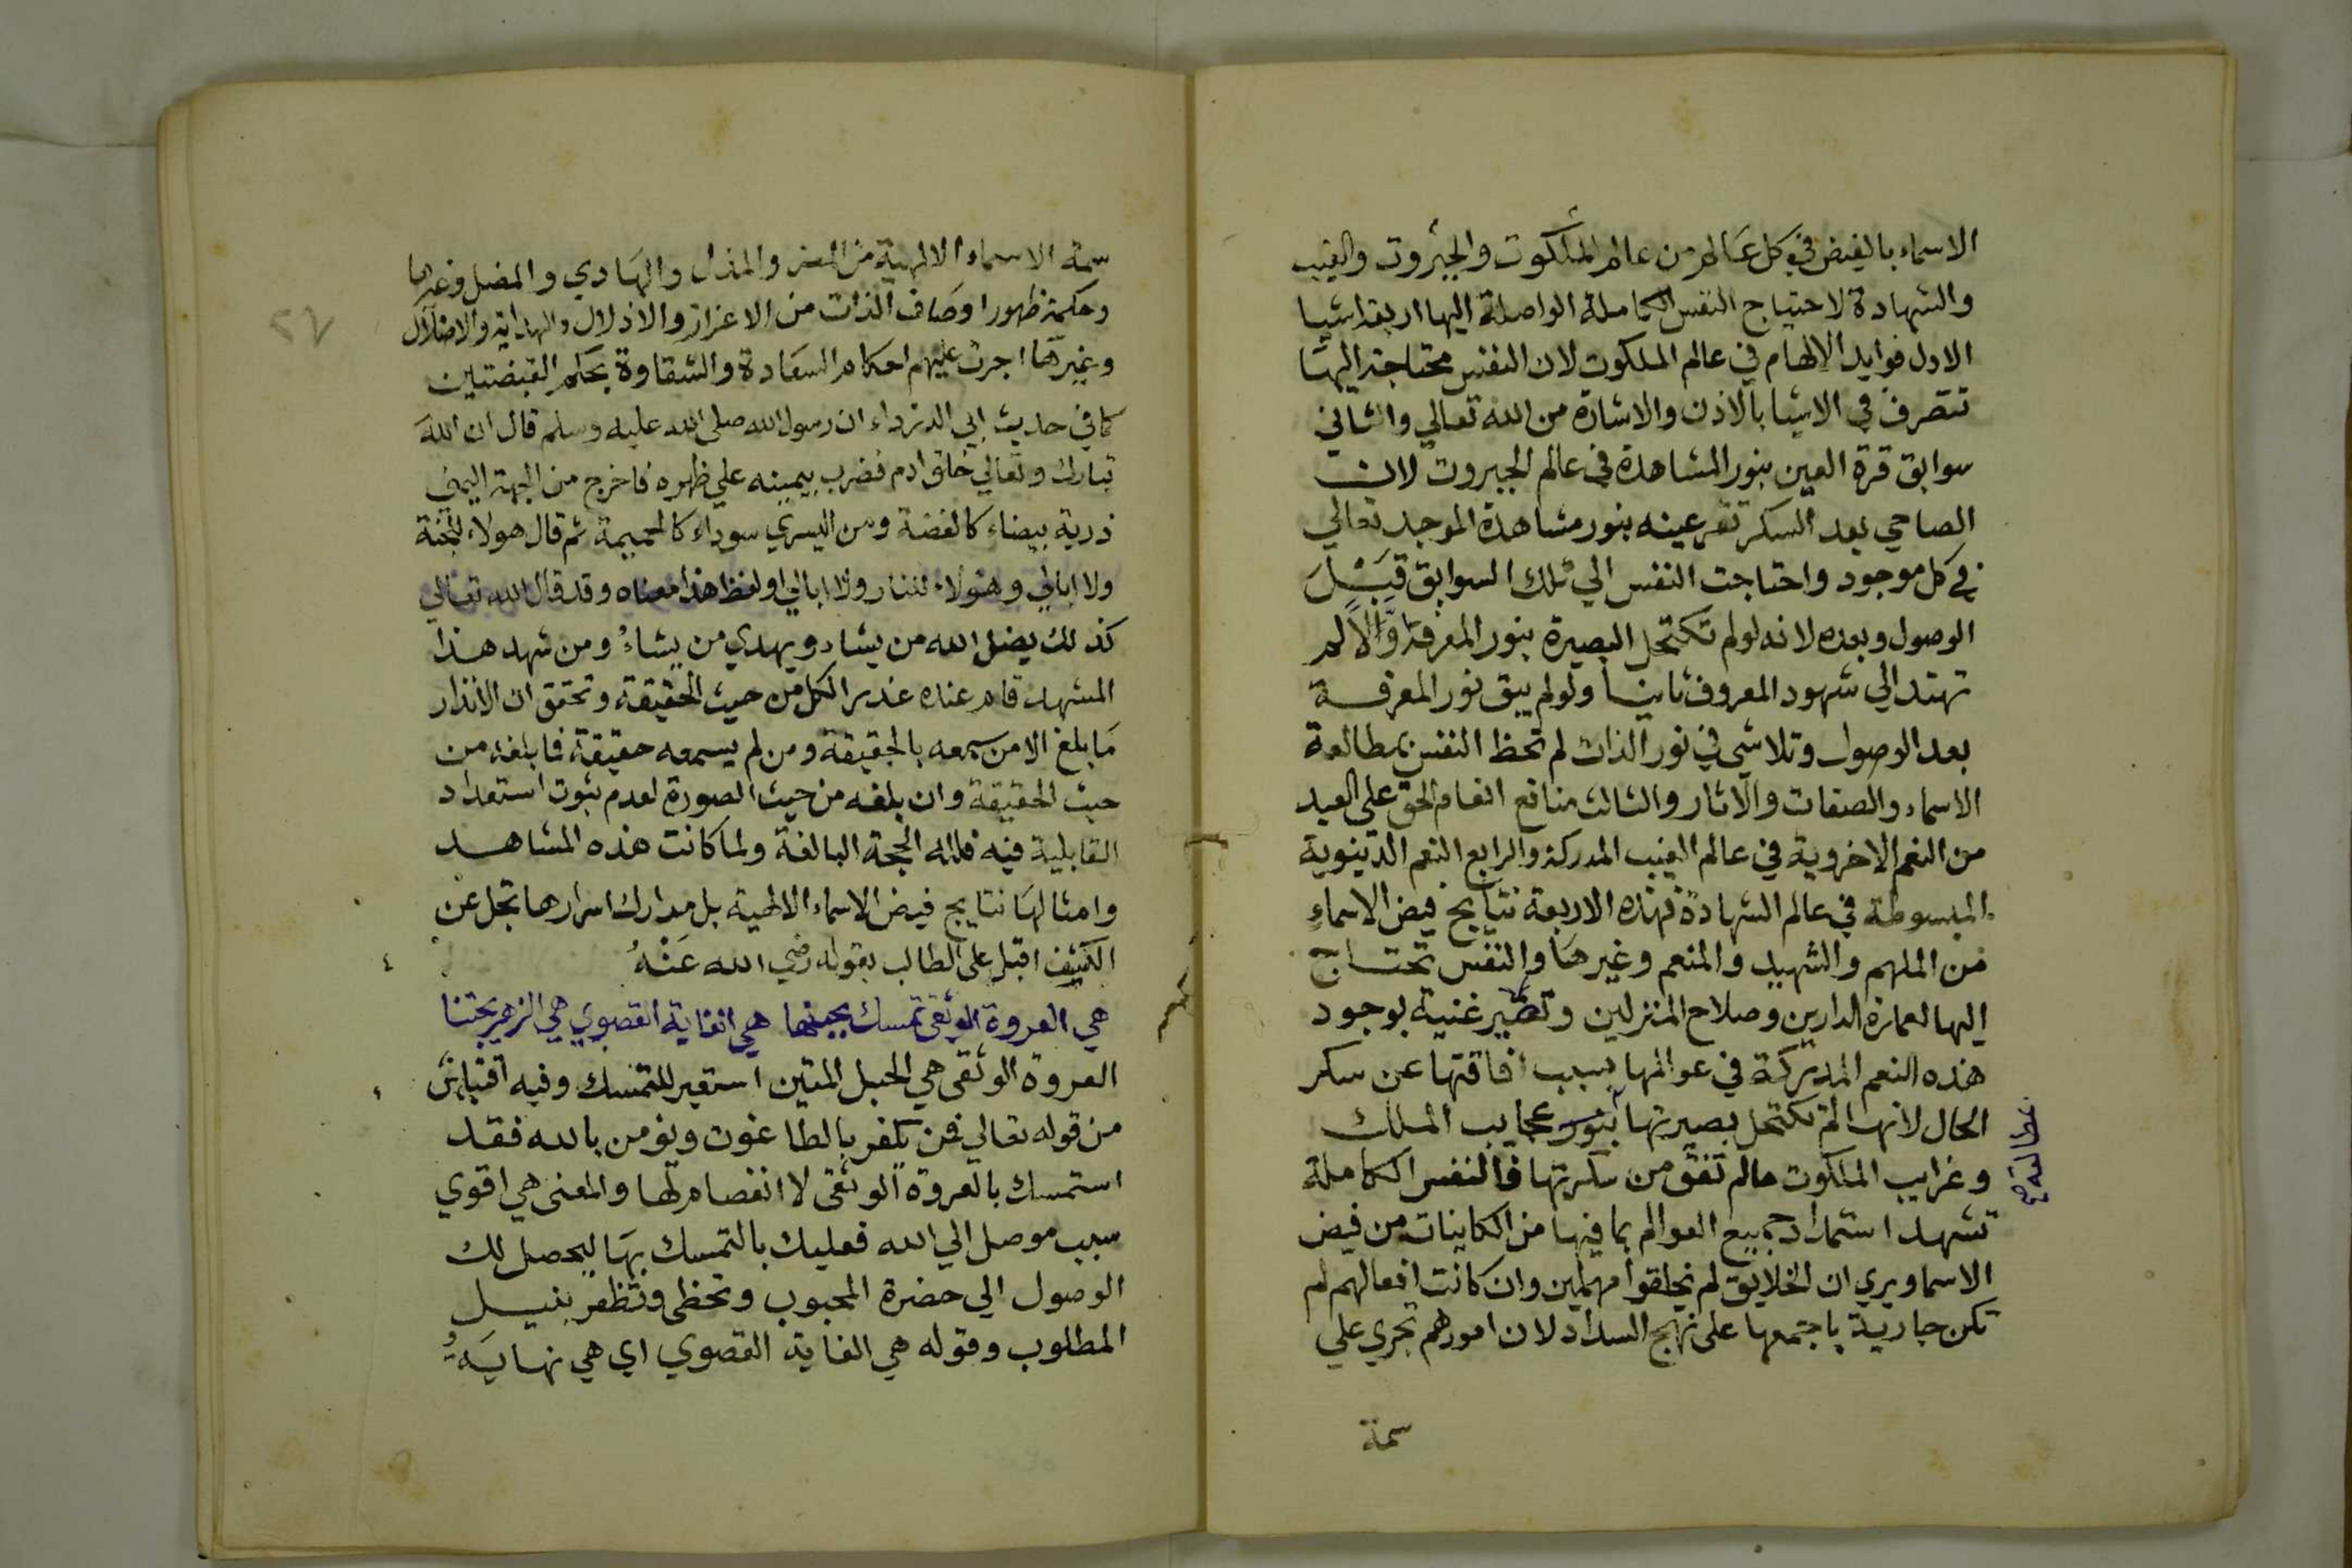 الاسماء بالفيض في كل عالم من عالم الملكوت والجبروت والغيب
والشهادة لاحتياج النفس الكاملة الواصلة اليها اربعة اشيا
الاول فوايد الالهام في عالم الملكوت لان النفس محتاجة اليها
تتصرف في الاشيا بالاذن والاشارة من الله تعالي والثاني
سوابق قرة العين بنور المشاهدة في عالم الجبروت لان
الصاحي بعد السكر تقر عينه بنور مشاهدة الموجد تعالي
في كل موجود واحتاجت النفس الي تلك السوابق قبل
الوصول وبعده لانه لو لم تكتحل البصيرة بنور المعرفة اولا لم
تهتد الي شهود المعروف ثانيا ولو لم يبق نور المعرفة
بعد الوصول وتلاشي في نور الذات لم تحظ النفس بمطالعة
الاسماء والصفات والاثار والثالث منافع انعام الحق علي العبد
من النعم الاخروية في عالم الغيب المدركة والرابع النعم الدنيوية
المبسوطة في عالم الشهادة فهذه الاربعة نتايج فيض الاسماء
من الملهم والشهيد والمنعم وغيرها والنفس تحتاج
اليها لعمارة الدارين وصلاح المنزلين وتصير غنية بوجود
هذه النعم المدركة في عوالمها بسبب افاقتها عن سكر
الحال لانها لم تكتحل بصيرتها بنور عجايب الملك
وغرايب الملكوت مالم تفق من سكرتها فالنفس الكاملة
تشهد استمداد جميع العوالم بما فيها من الكاينات من فيض
الاسما ويري ان الخلايق لم يخلقوا مهملين وان كانت افعالهم لم
تكن جارية باجمعها علي نهج السداد لان امورهم تجري علي
سمة
سمة الاسماء الالهية من المعز والمذل والهادي والمضل وغيرها
وحكمة ظهور اوصاف الذات من الاعزاز والاذلال والهداية والاضلال
وغيرها اجرت عليهم احكام السعادة والشقاوة بحكم القبضتين
كما في حديث ابي الدرداء ان رسول الله صلي الله عليه وسلم قال ان الله
تبارك وتعالي خلق ادم فضرب بيمينه علي ظهره فاخرج من الجهة اليمني
ذرية بيضاء كالفضة ومن اليسري سوداء كالحميمة ثم قال هولاء للجنة
ولا ابالي وهولاء للنار ولا ابالي او لفظ هذا معناه وقد قال الله تعالي
كذلك يضل الله من يشاء ويهدي من يشاء ومن شهد هذا
المشهد قام عنده عذر الكل من حيث الحقيقة وتحقق ان الانذار
ما بلغ الا من سمعه بالحقيقة ومن لم يسمعه حقيقة فما بلغه من
حيث الحقيقة وان بلغه من حيث الصورة لعدم ثبوت استعداد
القابلية فيه فلله الحجة البالغة ولما كانت هذه المشاهد
وامثالها نتايج فيض الاسماء الالهية بل مدارك اسرارها تجل عن
الكشف اقبل علي الطالب بقوله رضي الله عنه
هي العروة الوثقي تمسك بحبلها هي الغاية القصوي هي
العروة الوثقي هي الحبل المتين استعير للتمسك وفيه اقتباس
من قوله تعالي فمن يكفر بالطاغوت ويؤمن بالله فقد
استمسك بالعروة الوثقي لا انفصام لها والمعني هي اقوي
سبب موصل الي الله فعليك بالتمسك بها ليحصل لك
الوصول الي حضرة المحبوب وتحظي وتظفر بنيل
المطلوب وقوله هي الغاية القصوي اي هي نهاية
٢٧